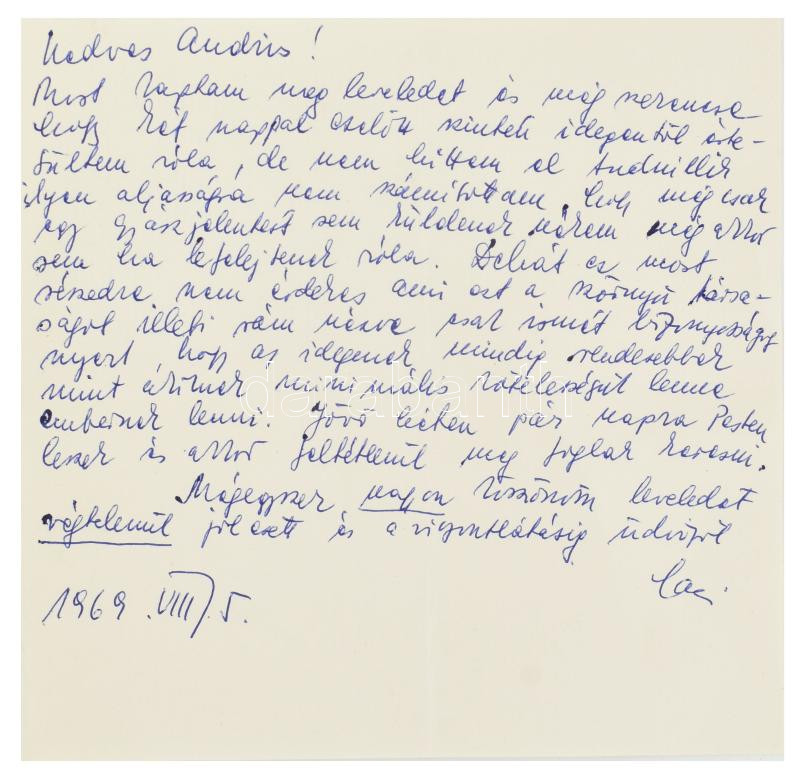 Kedves András!
Most kaptam meg leveledet és még szerencse
hogy két nappal ezelőtt szintén idegentől érte-
sültem róla, de nem hittem el
ilyen aljasságra nem számítottam, hogy még csak
egy gyászjelentést sem küldenek nékem még akkor
sem ha lefelejtenek róla. Dehát ez most
részedre nem érdekes ami ezt a szörnyű társa-
ságot illeti rám nézve csak ismét bizonyosságot
nyert, hogy az idegenek mindig rendesebbek
mint akiknek minimális kötelességük lenne
embernek lenni. Jövő héten pár napra Pesten
leszek és akkor feltétlenül meg foglak keresni.
Mégegyszer nagyon köszönöm leveledet
végtelenül jól esett és a viszontlátásig üdvözöl
1969. VIII. 5.
darabanth